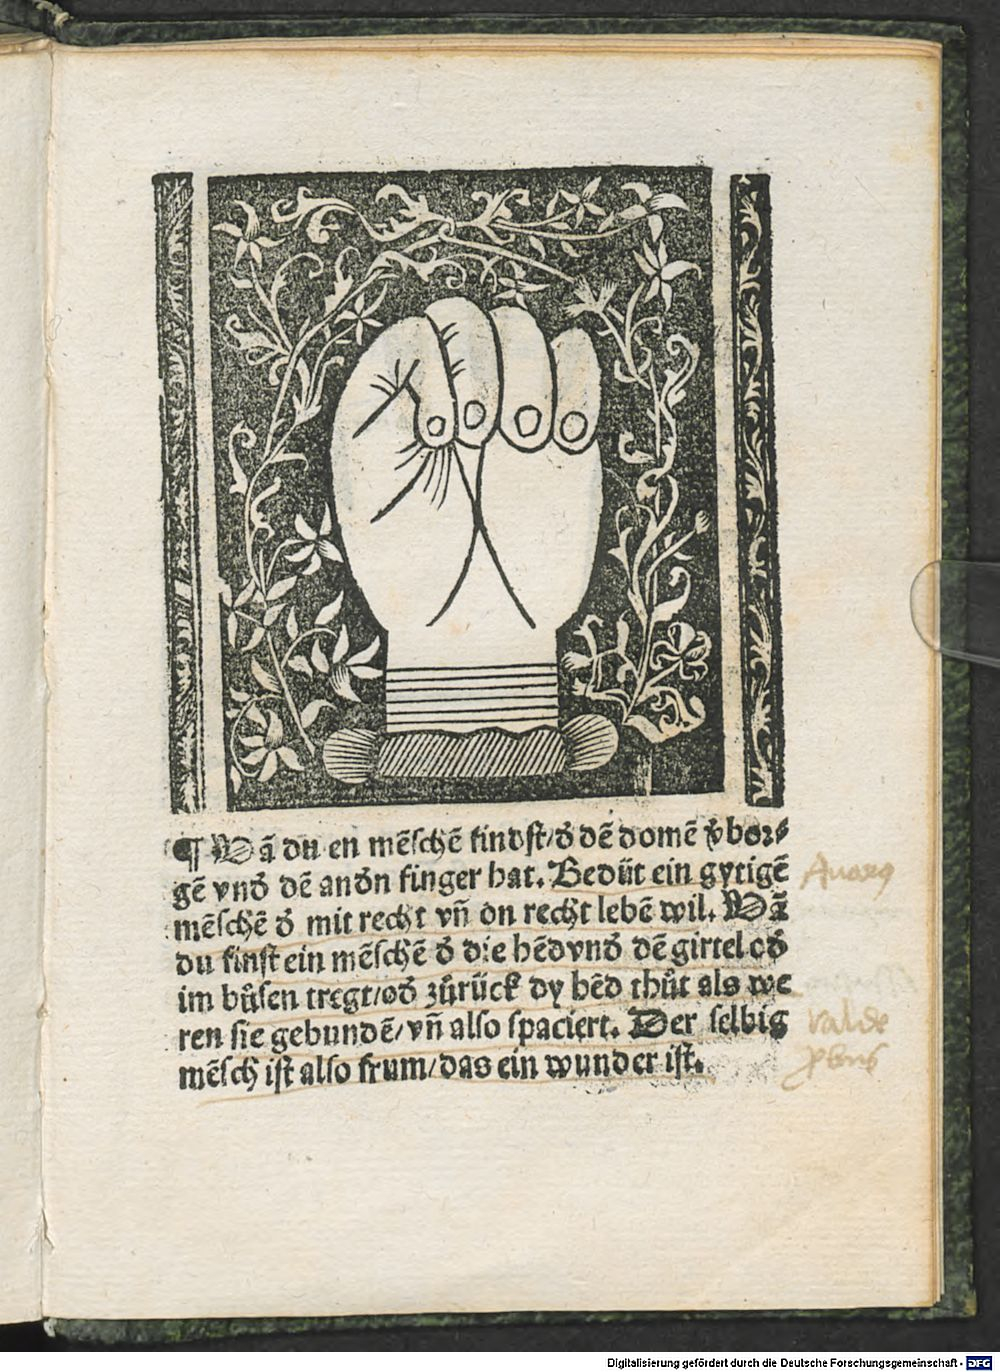 ¶ Wā du en mēschē findst/ď dē domē v̓bor⸗
gē vnď dē andn̄ finger hat. Bedüt ein gytigē
mēschē ď mit recht vn̄ on recht lebē wil. Wā
du finst ein mēschē ď die hēd vnď dē girtel oď
im bůsen tregt/oď zůrück dy hēd thůt als we
ren sie gebundē/vn̄ also spaciert. Der selbig
mēsch ist also frum/das ein wunder ist.
Auarꝯ
valde
ꝓbus
Digitalisierung gefördert durch die Deutsche Forschungsgemeinschaft - DFG